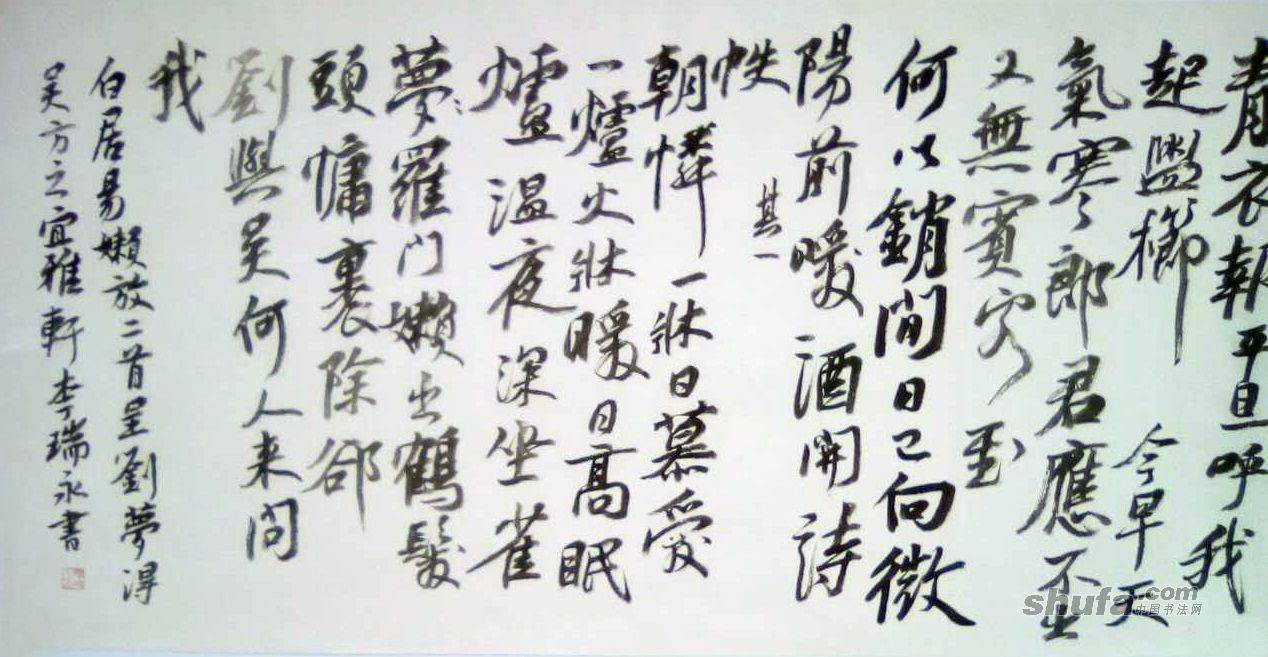 青衣報平旦呼我
起盥櫛 今早天
氣寒郎君應不出
又無賓客至
何以銷閒日已向微
陽前暖酒開詩
帙 其一
朝憐一牀日暮愛
一爐火牀暖日高眠
爐温夜深坐雀
夢羅門嬾出鶴髮
頭慵裹除郤
劉與吴何人来问
我
白居易嬾放二首呈劉夢得
吴方之宜雅軒李瑞永書
shufa.com
中国书法网